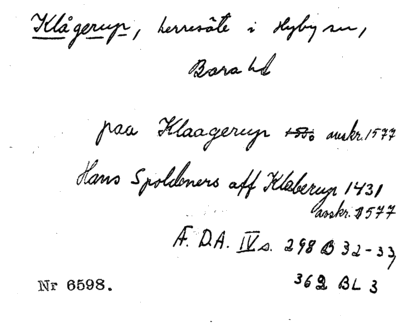 Klågerup, herresäte i Hyby sn,
Bara hd
paa Klaagerup 1550 avskr. 1577
Hans Spoldeners aff Klaberup 1431
avskr. 1577
Æ. D. A. IV s. 298 B 32-33,
362 BL 3
Nr 6598.